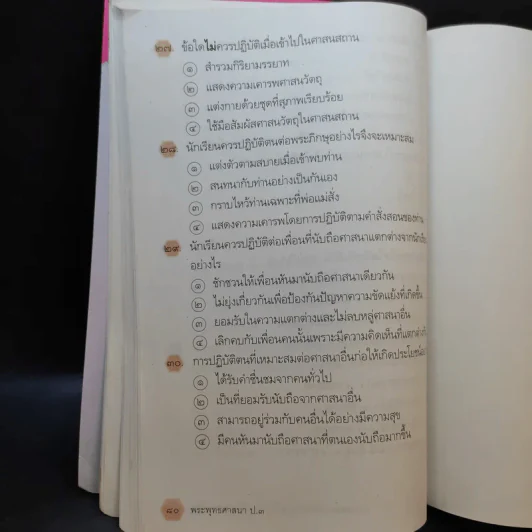 ๒๗. ข้อใดไม่ควรปฏิบัติเมื่อเข้าไปในศาสนสถาน
๑ สำรวมกิริยามรรยาท
๒ แสดงความเคารพศาสนวัตถุ
๓ แต่งกายด้วยชุดที่สุภาพเรียบร้อย
๔ ใช้มือสัมผัสศาสนวัตถุในศาสนสถาน
๒๘. นักเรียนควรปฏิบัติตนต่อพระภิกษุอย่างไรจึงจะเหมาะสม
๑ แต่งตัวตามสบายเมื่อเข้าพบท่าน
๒ สนทนากับท่านอย่างเป็นกันเอง
๓ กราบไหว้ท่านเฉพาะที่พ่อแม่สั่ง
๔ แสดงความเคารพโดยการปฏิบัติตามคำสั่งสอนของท่าน
๒๙. นักเรียนควรปฏิบัติต่อเพื่อนที่นับถือศาสนาแตกต่างจากนักเรียน
อย่างไร
๑ ชักชวนให้เพื่อนหันมานับถือศาสนาเดียวกัน
๒ ไม่ยุ่งเกี่ยวกันเพื่อป้องกันปัญหาความขัดแย้งที่เกิดขึ้น
๓ ยอมรับในความแตกต่างและไม่ลบหลู่ศาสนาอื่น
๔ เลิกคบกับเพื่อนคนนั้นเพราะมีความคิดเห็นที่แตกต่างกัน
๓๐. การปฏิบัติตนที่เหมาะสมต่อศาสนาอื่นก่อให้เกิดประโยชน์
๑ ได้รับคำชื่นชมจากคนทั่วไป
๒ เป็นที่ยอมรับนับถือจากศาสนาอื่น
๓ สามารถอยู่ร่วมกับคนอื่นได้อย่างมีความสุข
๔ มีคนหันมานับถือศาสนาที่ตนเองนับถือมากขึ้น
๘๐ พระพุทธศาสนา ป.๓